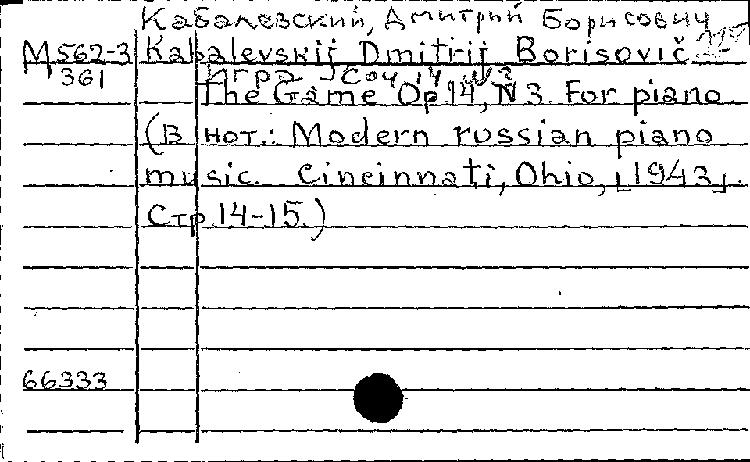 Кабалевский, Дмитрий Борисович
М562-3 Kabalevskij Dmitrij Borisovič
361 Игра Соч 14 №3
The Game Op 14, N 3. For piano
(В нот.: Modern russian piano
music. Cincinnati, Ohio, [1943].
Стр. 14-15.)
66333